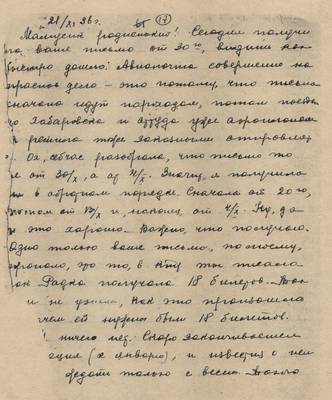 21/XI 36 г. 17
Мамусин родненький! Сегодня получи
ла ваше письмо от 30го, видишь как
быстро дошло! Авиапочта совершенно на
прасное дело – это потому, что письма
сначала идут пароходом, потом поезд
до Хабаровска и оттуда уже аэропланом
Да, сейчас разобрала, что письмо то
не от 30/X, а от 4/X. Значит, я получила
их в обратном порядке. Сначала от 20го,
потом от 13/X и, наконец, от 4/X. Ну, да
и это хорошо. Важно, что получила.
Одно только ваше письмо, по-моему,
пропало, это то, в котором ты писала
как Радка получала 18 билетов. Так
я и не узнаю, как это произошло
чем ей нужны были 18 билетов.
ничего нет. Скоро заканчивается
ация (к январю), и известия о нем
будут только с весны. Такого